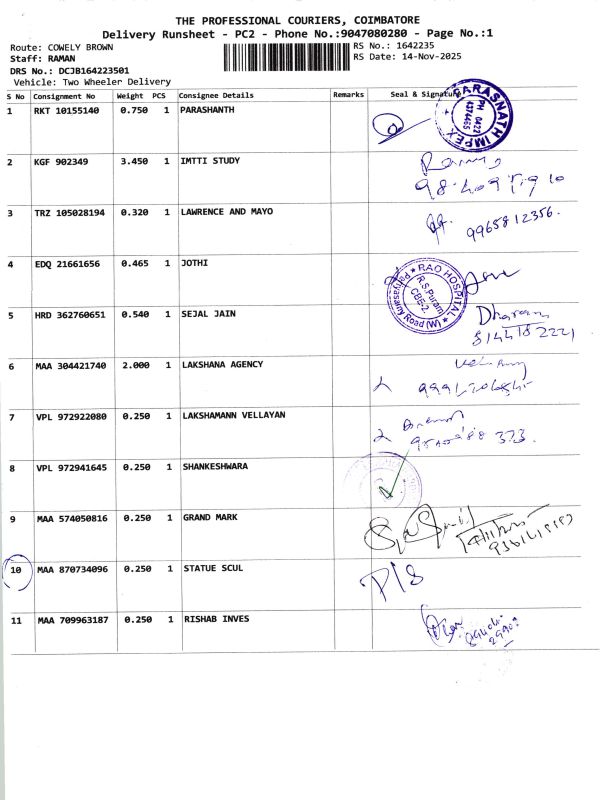 THE PROFESSIONAL COURIERS, COIMBATORE
Delivery Runsheet - PC2 - Phone No.:9047080280 - Page No.:1
Route: COWELY BROWN
RS No.: 1642235
Staff: RAMAN
RS Date: 14-Nov-2025
DRS No.: DCJB164223501
Vehicle: Two Wheeler Delivery
S No Consignment No Weight PCS Consignee Details Remarks Seal & Signature
1 RKT 10155140 0.750 1 PARASHANTH
PARASNATH IMPEX
PH 0422
4374465
2 KGF 902349 3.450 1 IMTTI STUDY
3 TRZ 105028194 0.320 1 LAWRENCE AND MAYO
9965812356.
4 EDQ 21661656 0.465 1 JOTHI
RAO HOSPITAL
R.S.Puram
CBE-2.
Periyasamy Road (W)
5 HRD 362760651 0.540 1 SEJAL JAIN
Dharani
8144182221
6 MAA 304421740 2.000 1 LAKSHANA AGENCY
7 VPL 972922080 0.250 1 LAKSHAMANN VELLAYAN
8 VPL 972941645 0.250 1 SHANKESHWARA
9 MAA 574050816 0.250 1 GRAND MARK
10 MAA 870734096 0.250 1 STATUE SCUL
P/S
11 MAA 709963187 0.250 1 RISHAB INVES